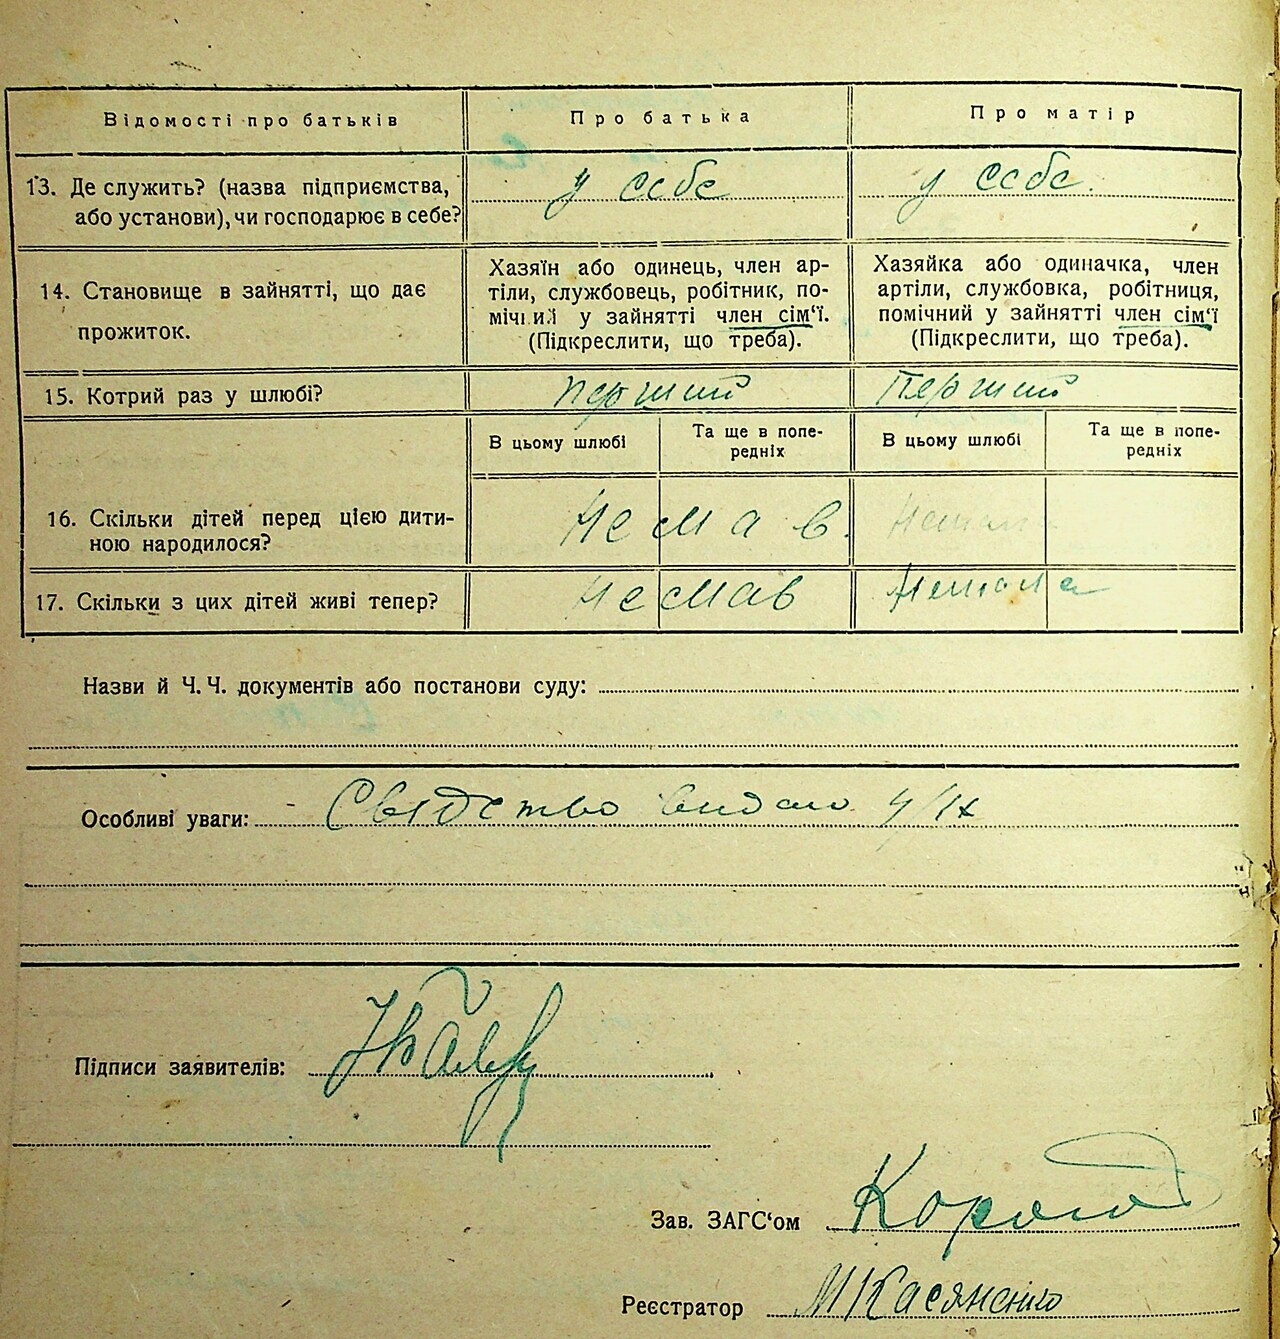 Відомості про батьків
Про батька
Про матір
13. Де служить? (назва підприємства,
або установи), чи господарює в себе?
у себе
у себе.
14. Становище в зайнятті, що дає
прожиток.
Хазяїн або одинець, член ар-
тіли, службовець, робітник, по-
мічний у зайнятті член сім‘ї.
(Підкреслити, що треба).
Хазяйка або одиначка, член
артіли, службовка, робітниця,
помічний у зайнятті член сім‘ї
(Підкреслити, що треба).
15. Котрий раз у шлюбі?
перший
Перший
В цьому шлюбі
Та ще в попе-
редніх
В цьому шлюбі
Та ще в попе-
редніх
16. Скільки дітей перед цією дити-
ною народилося?
Немав.
Немала
17. Скільки з цих дітей живі тепер?
Немав
Немала
Назви й Ч. Ч. документів або постанови суду:
Особливі уваги: - Свідство видано 4/IX
Підписи заявителів:
Зав. ЗАГС‘ом
Реєстратор МКасяненко